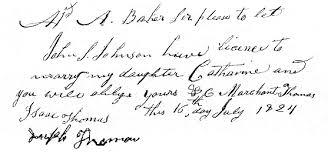 A. Baker Sir please to let
John S. Johnson have license to
marry my daughter Catharine and
you will oblige yours &C Marchant Thomas
Isaac Thomas this 15, day July 1824
Joseph Thomas